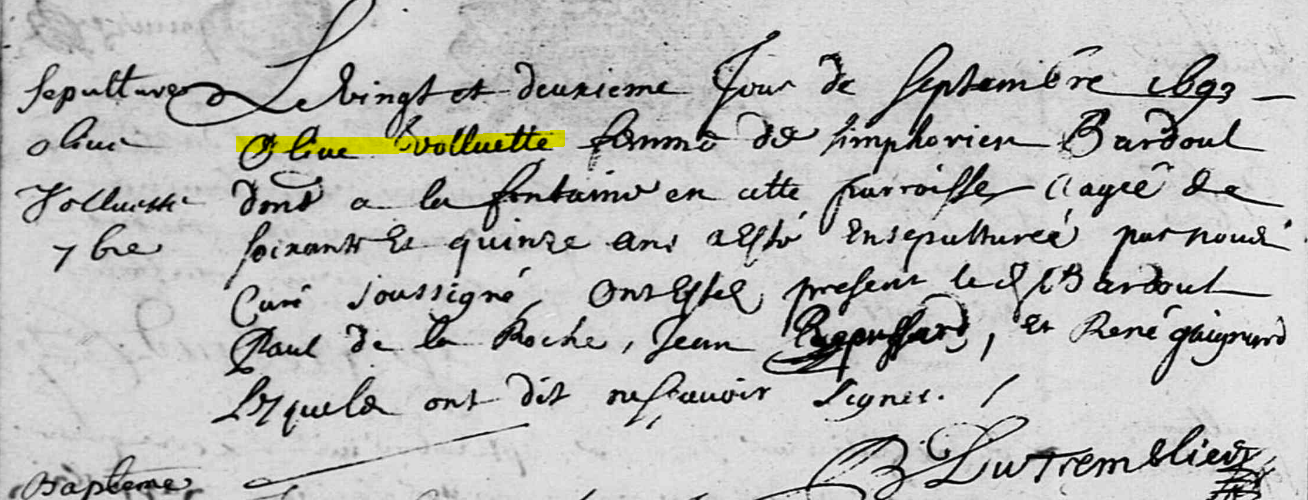 sepulture d
olive
Volluette
7bre
Le vingt et deuxieme Jour de Septembre 1693
Olive Volluette femme de simphorien Bardoul
dont a la fontaine en cette parroisse aageé de
soixante et quinze ans a esté Ensepultureé par nous
Curé soussigné, ont Estés present led. Bardoul
Paul de la Roche, Jean, et René gaignard
Lesquels ont dit ne scavoir signer.
B Dutremblier
Bapteme